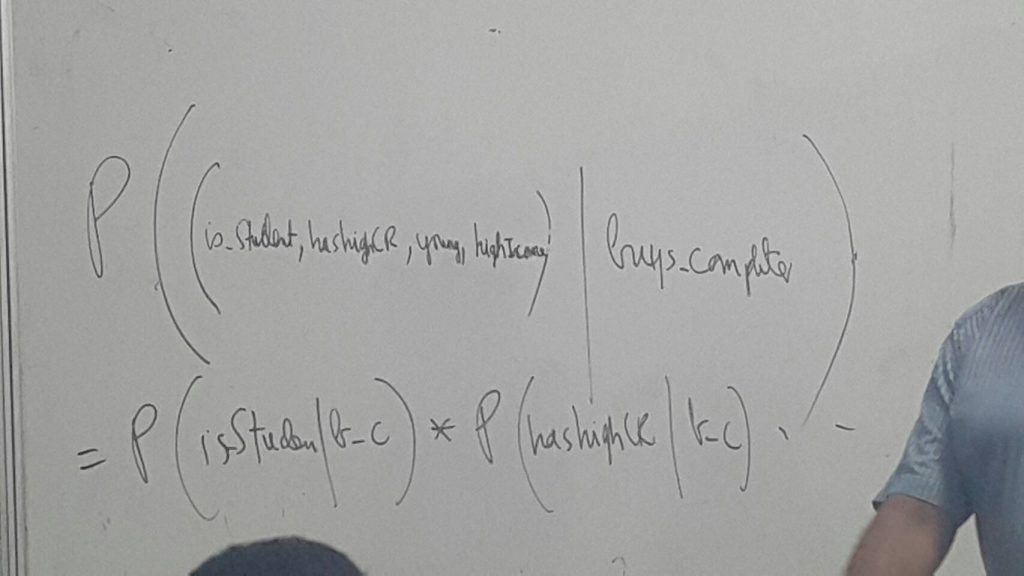 P((is_Student, hashighCR, young, highIncome) | buys_computer)
= P(is_Studen/b_c) * P(hashighCR | b_c) . -